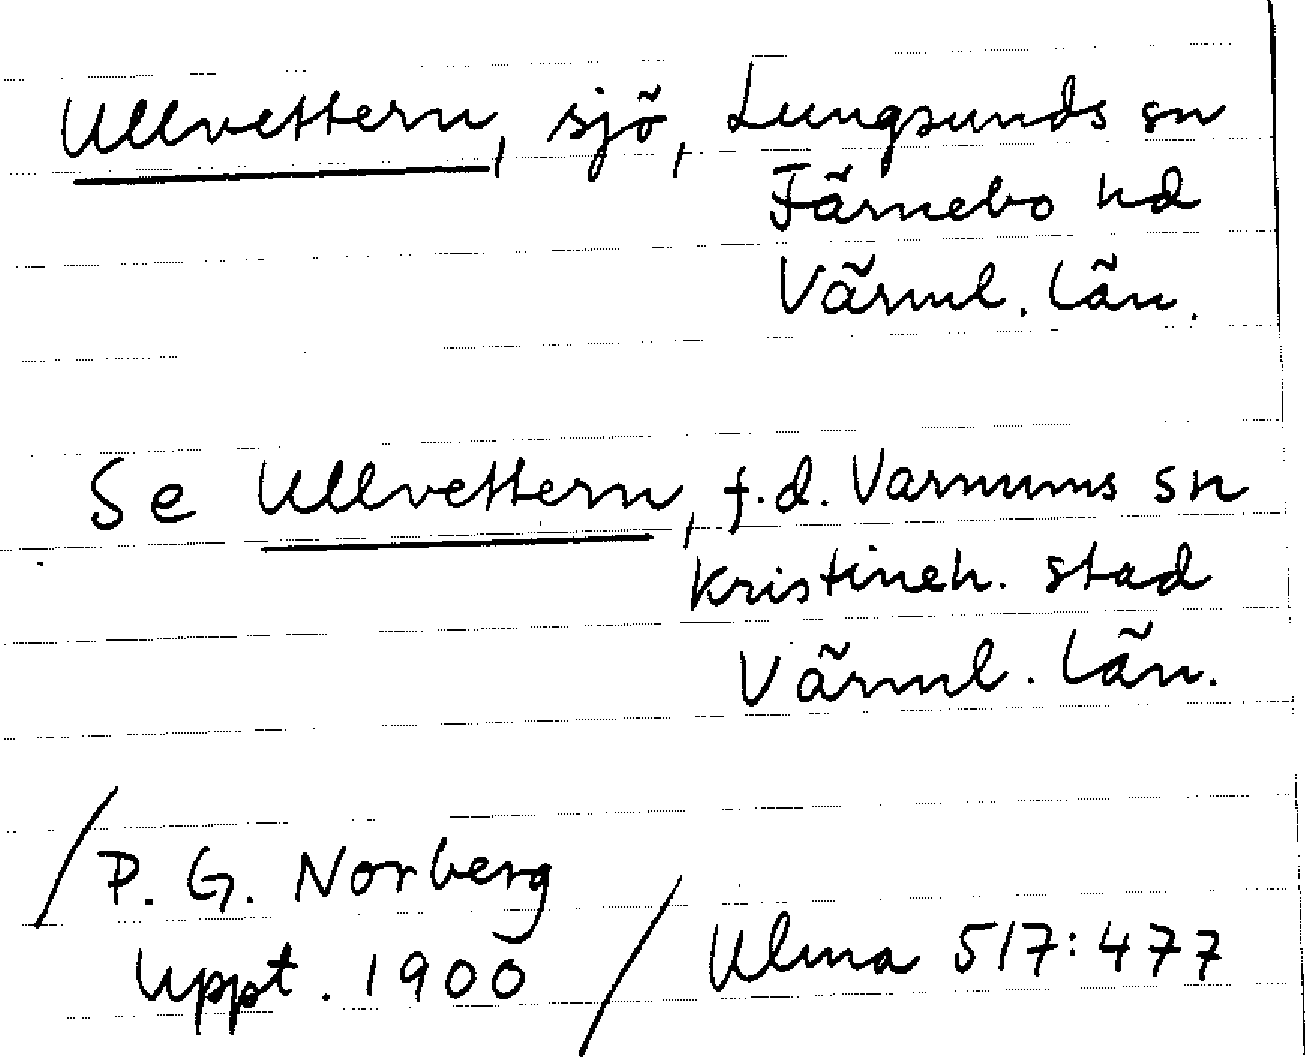 Ullvettern, sjö, Lungsunds sn
Färnebo hd
Värml. län.
Se Ullvettern, f.d. Varnums sn
Kristineh. stad
Värml. län.
/P. G. Norberg
Uppt. 1900 / Ulma 517:477